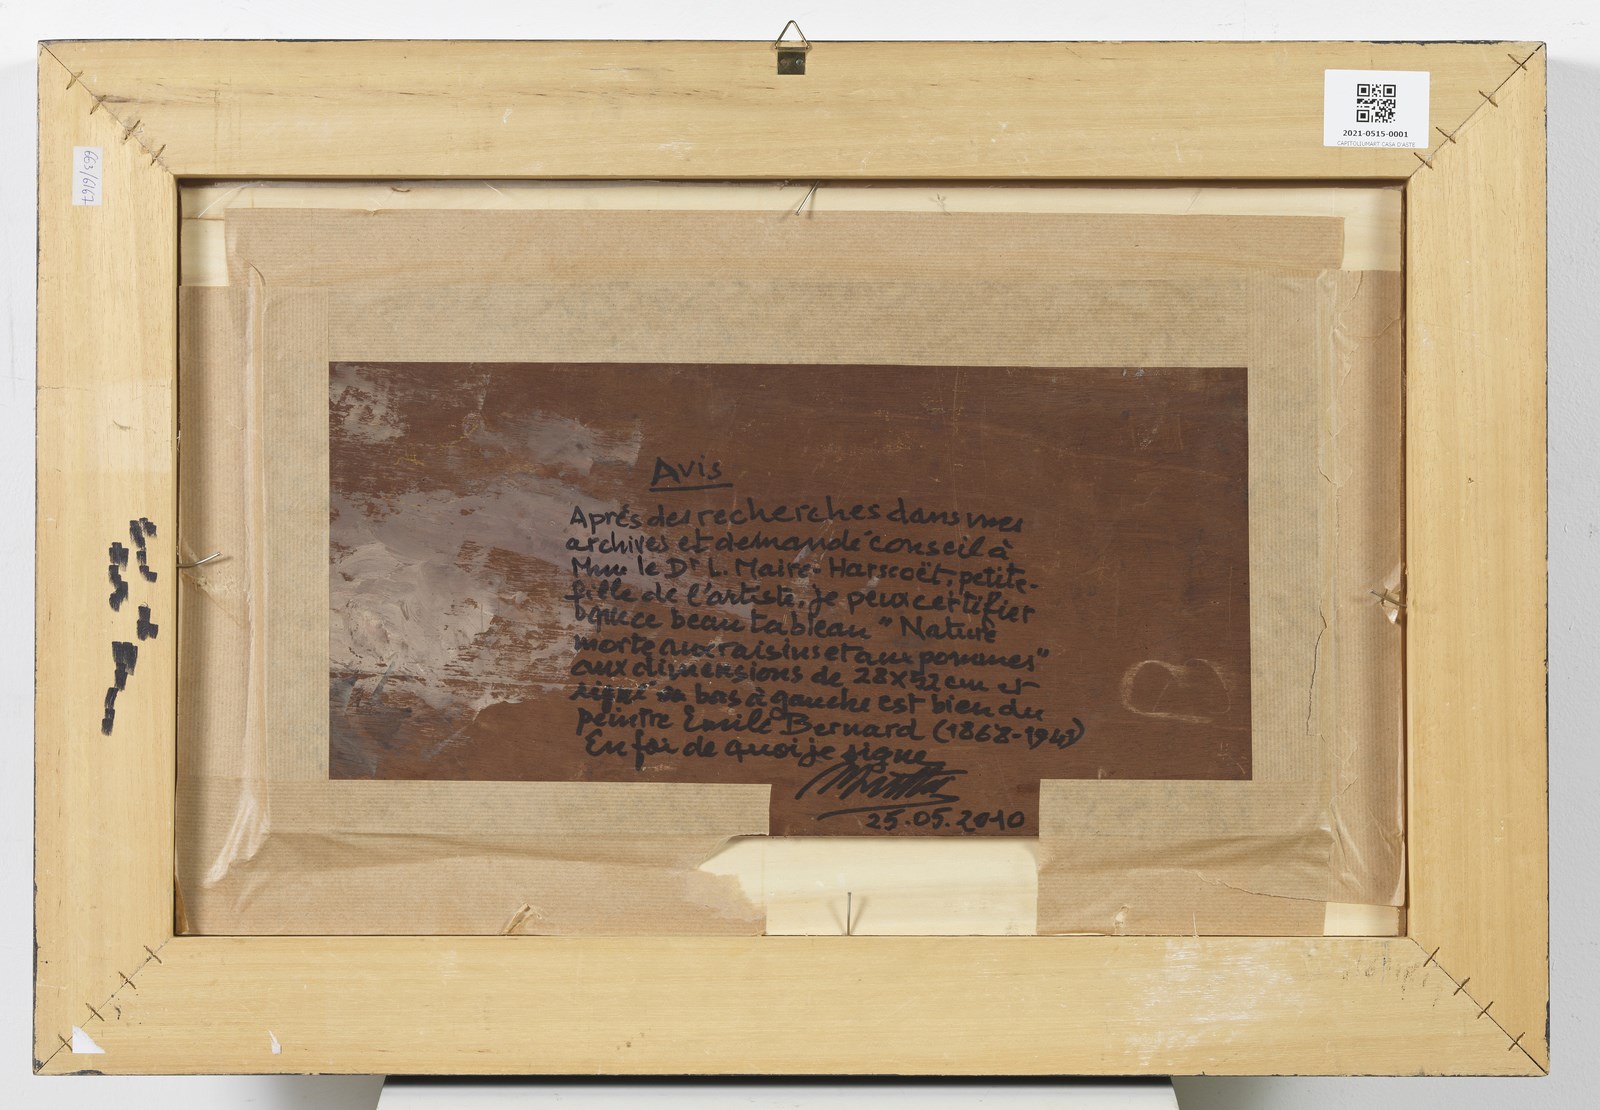 2021-0515-0001
CAPITOLIUMART CASA D'ASTE
663/6167
Avis
Après des recherches dans mes
archives et demandé conseil à
Mme le Dr L. Maire-Harscoët, petite-
fille de l'artiste, je peux certifier
que ce beau tableau "Nature
morte aux raisins et aux pommes"
aux dimensions de 28x52 cm et
signé en bas à gauche est bien du
peintre Emile Bernard (1868-1941)
En foi de quoi je signe
25.05.2010
B